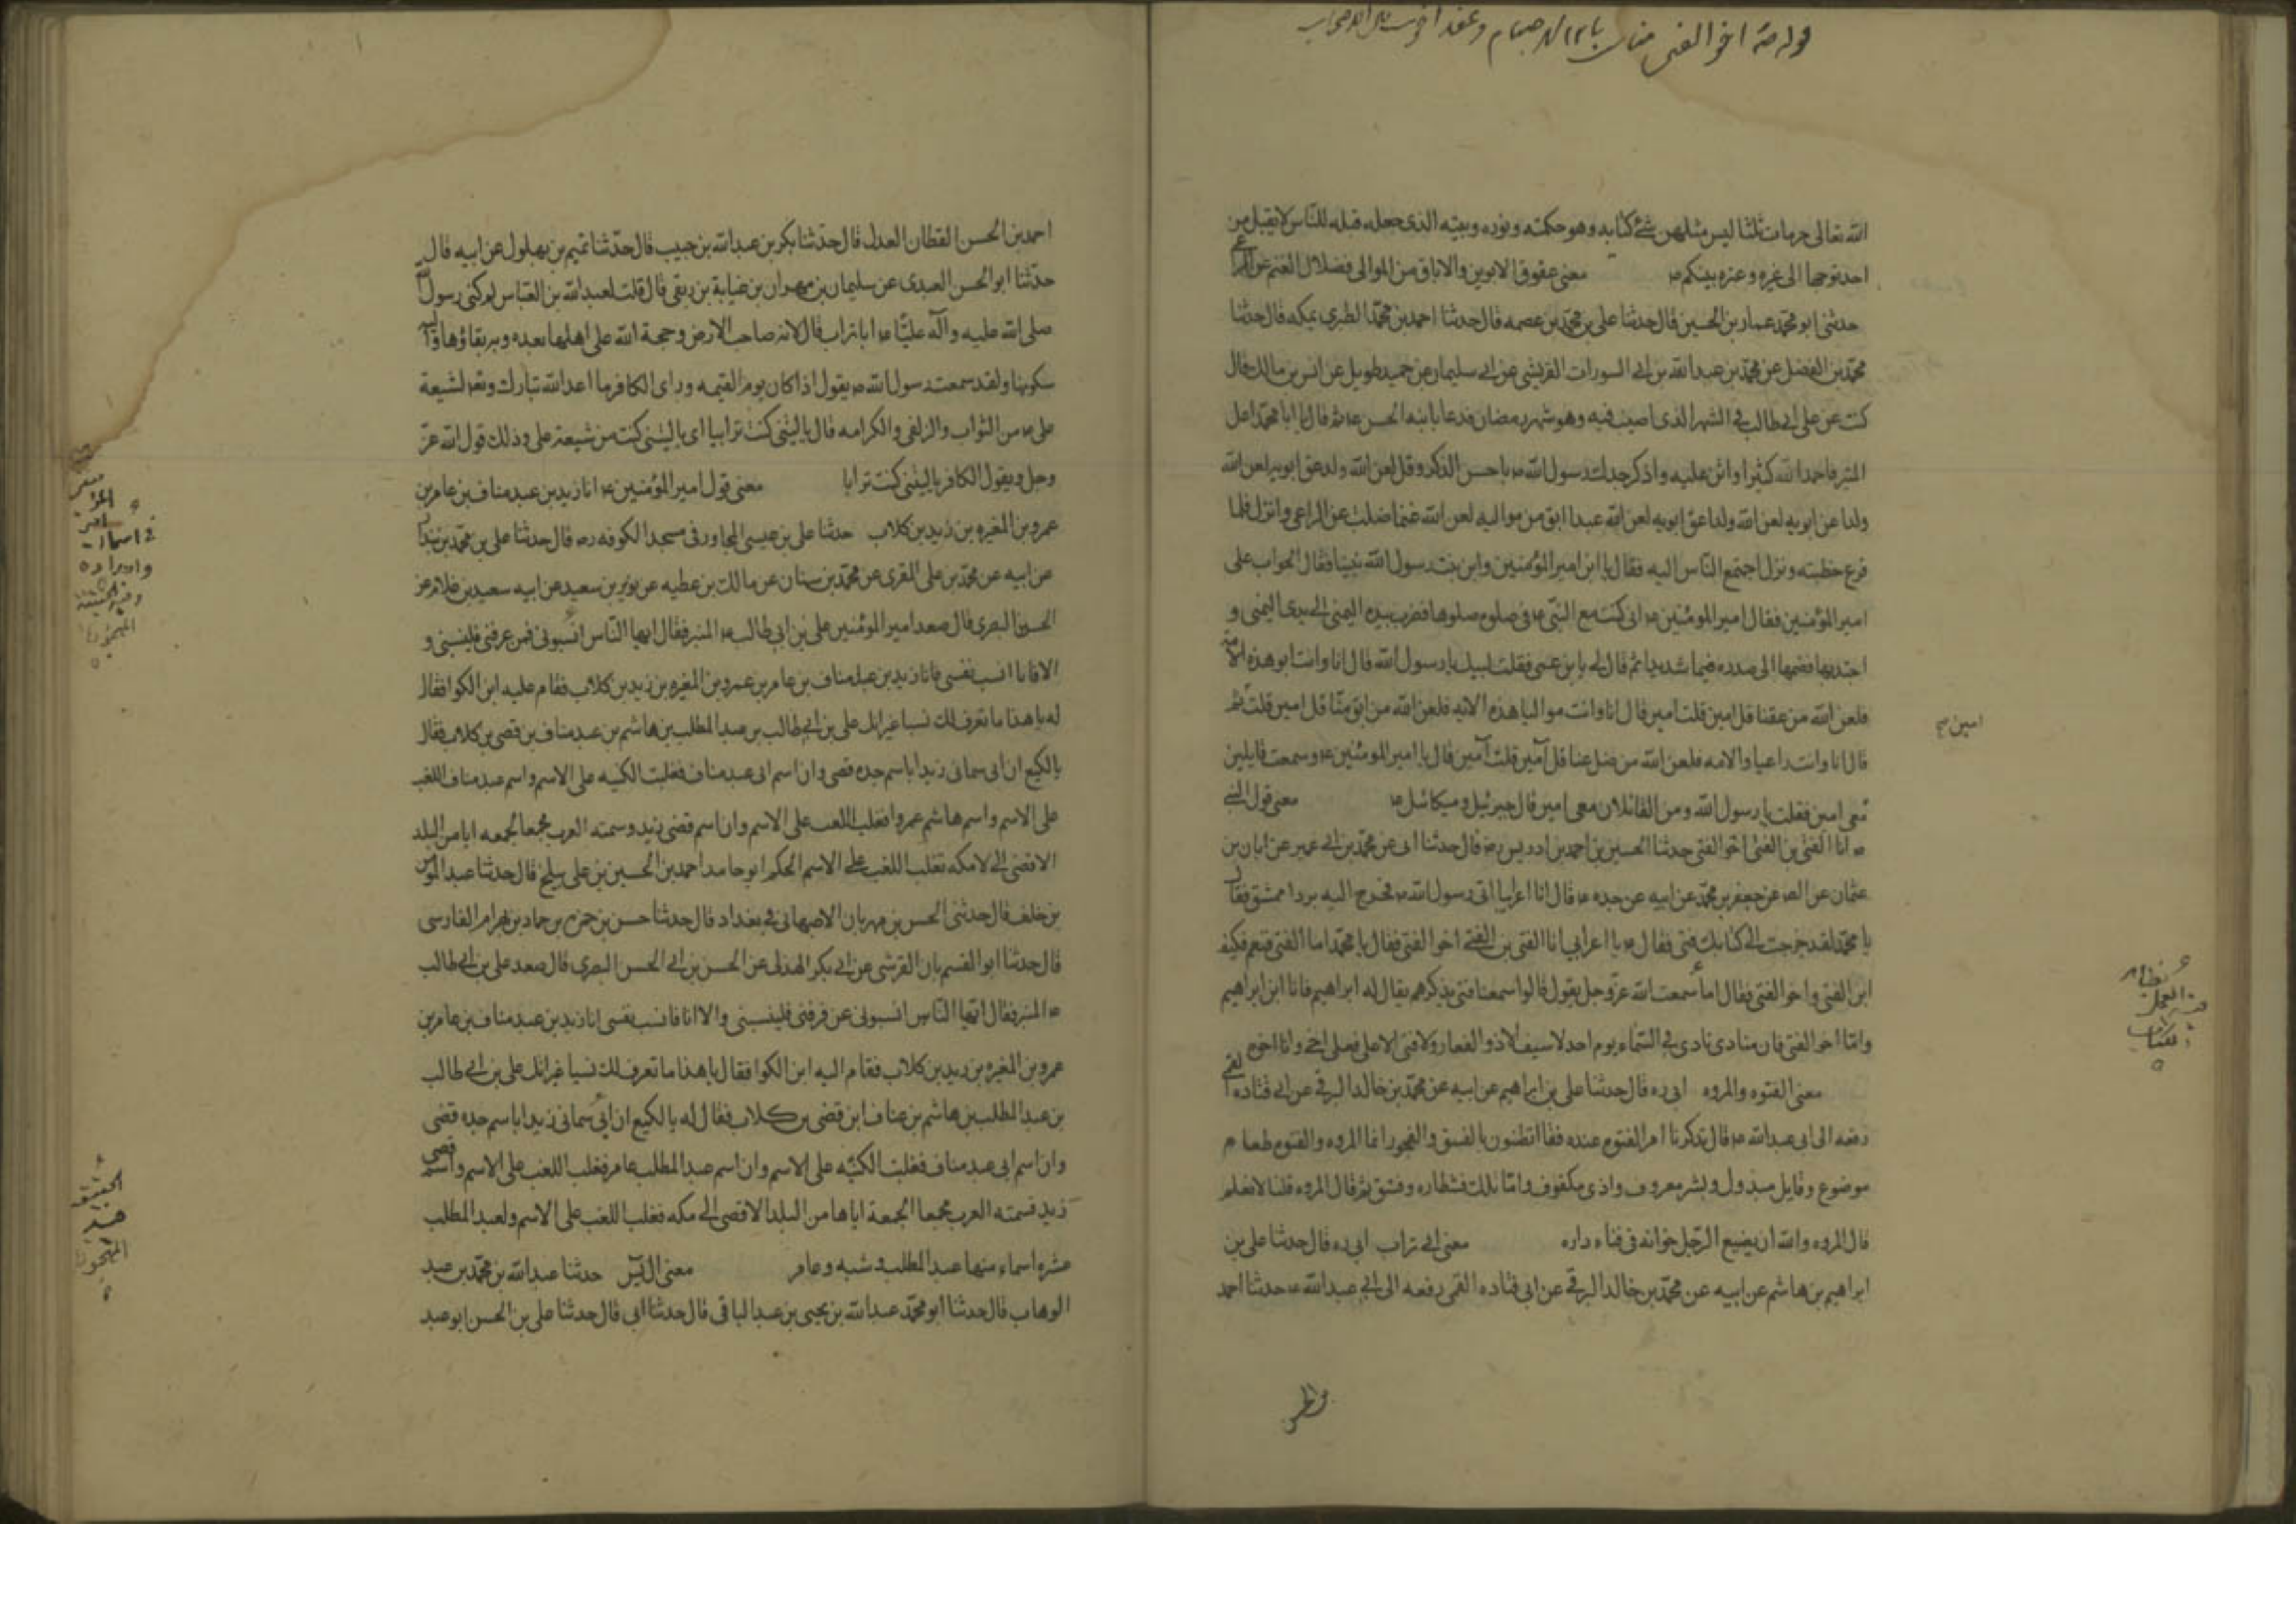 الله تعالى حرمات ثلثا ليس مثلهن شئ كتابه وهو حكمته ونوره وبيته الذى جعله قبله للناس لا يقبل من
احد توجها الى غيره وعتره بينكم ص معنى عقوق الابوين والاباق من الموالى وضلال الغنم عن الراعى
حدثنى ابو محمد عمار بن الحسين قال حدثنا على بن محمد بن عصمه قال حدثنا احمد بن محمد الطبرى بمكه قال حدثنا
محمد بن الفضل عن محمد بن عبد الله بن ابى السورات القريشى عن ابى سليمان عن حميد طويل عن انس بن مالك قال
كنت عن على ابى طالب فى الشهر الذى اصيب فيه وهو شهر رمضان فدعا بابنه الحسن ع ثم قال يا ابا محمد اعل
المنبر فاحمد الله كثيرا واثن عليه واذكر جدك رسول الله ص باحسن الذكر وقل لعن الله ولد عق ابويه لعن الله
ولدا عن ابويه لعن الله ولدا عق ابويه لعن الله عبدا ابق من مواليه لعن الله غنما ضلت عن الراعى وانزل فلما
فرغ خطبته ونزل اجتمع الناس اليه فقال يا ابن امير المؤمنين وابن بنت رسول الله نبينا فقال الجواب على
امير المؤمنين فقال امير المومنين ع انى كنت مع النبى ص فى صلوه صلوها فضرب بيده اليمنى الى يدى اليمنى و
اجتذبها فضمها الى صدره ضما شديدا ثم قال له يا بن عمى فقلت لبيك يا رسول الله قال انا وانت ابو هذه الامة
فلعن الله من عقنا قل امين قلت امين قال انا وانت مواليا هذه الامه فلعن الله من ابق منا قل امين قلت ثم
امين صح
قال انا وانت راعيا والامه فلعن الله من ضل عنا قل آمين قلت آمين قال يا امير المومنين ع وسمعت قايلين
معى امين فقلت يا رسول الله ومن القائلان معى امين قال جبرئيل وميكائيل ع معنى قول النبى
ص انا الفتى بن الفتى اخو الفتى حدثنا الحسين بن احمد بن ادريس ره قال حدثنا ابى عن محمد بن ابى عمير عن ابان بن
عثمان عن الص عن جعفر بن محمد عن ابيه عن جده ع قال انا اعرابيا اتى رسول الله ص فخرج اليه بردا ممشق فقال
يا محمد لقد خرجت الى كنابك فتى فقال ص يا اعرابى انا الفتى بن الفتى اخو الفتى فقال يا محمد اما الفتى فنعم فكيف
ابن الفتى واخو الفتى فقال اما سمعت الله عز وجل يقول قالوا سمعنا فتى يذكرهم يقال له ابراهيم فانا ابن ابراهيم
واما اخو الفتى فان منادى نادى فى السماء يوم احد لا سيف الا ذو الفقار ولا فتى الا على فعلى اخى وانا اخوه
معنى الفتوه والمروه ابى ره قال حدثنا على بن ابراهيم عن ابيه عن محمد بن خالد البرقى عن ابى قتاده القمى
رفعه الى ابى عبد الله ع قال تذكرنا امر الفتوه عنده فقال تظنون بالفسق والفجور انما المروه والفتوه طعام
موضوع ونايل مبذول وبشر معروف واذى مكفوف واما تلك فشطاره وفسق ثم قال المروه قلنا لا نعلم
قال المروه والله ان يضع الرجل خوانه فى فناء داره معنى ابى تراب ابى ره قال حدثنا على بن
ابراهيم بن هاشم عن ابيه عن محمد بن خالد البرقى عن ابى قتاده القمى رفعه الى ابى عبد الله ع حدثنا احمد
احمد بن الحسن القطان العدل قال حدثنا بكر بن عبد الله بن حبيب قال حدثنا تميم بن بهلول عن ابيه قال
حدثنا ابو الحسن العبدى عن سليمان بن مهران بن عباية بن ربعى قال قلت لعبد الله بن العباس لم كنى رسول الله
صلى الله عليه وآله عليا ع ابا تراب قال لانه صاحب الارض وحجة الله على اهلها بعده وبه بقاؤها واليه
سكونها ولقد سمعت رسول الله ص يقول اذا كان يوم القيمه وراى الكافر ما اعد الله تبارك وتعالى لشيعة
على ع من الثواب والزلفى والكرامه قال يا ليتنى كنت ترابيا اى يا ليتنى كنت من شيعة على وذلك قول الله عز
وجل ويقول الكافر يا ليتنى كنت ترابا معنى قول امير المؤمنين ع انا زيد بن عبد مناف بن عامر بن
عمرو بن المغيره بن زيد بن كلاب حدثنا على بن عيسى المجاور فى مسجد الكوفه ره قال حدثنا على بن محمد بن بندار
عن ابيه عن محمد بن على المقرى عن محمد بن سنان عن مالك بن عطيه عن ثوير بن سعيد عن ابيه سعيد بن علاقه عن
الحسن البصرى قال صعد امير المؤمنين على بن ابى طالب ع المنبر فقال ايها الناس انسبونى فمن عرفنى فلينسبنى و
الا فانا انسب نفسى فانا زيد بن عبد مناف بن عامر بن عمرو بن المغيره بن زيد بن كلاب فقام عليه ابن الكوا فقال
له يا هذا ما نعرف لك نسبا غير انك على بن ابى طالب بن عبد المطلب بن هاشم بن عبد مناف بن قصى بن كلاب فقال
يا لكيع ان ابى سمانى زيدا باسم جده قصى وان اسم ابى عبد مناف فغلبت الكنيه على الاسم واسم عبد مناف اللقب
على الاسم واسم هاشم عمروا فغلب اللقب على الاسم وان اسم قصى زيد وسمته العرب مجمعا لجمعه اياها من البلد
الاقصى الى لامكه تغلب اللقب على الاسم الحكم ابو حامد احمد بن الحسين بن على ببلخ قال حدثنا عبد المومن
بن خلف قال حدثنى الحسن بن مهربان الاصبهانى فى بغداد قال حدثنا حسن بن حمزه بن حماد بن بهرام الفارسى
قال حدثنا ابو القسم بان القرشى عن ابى بكر الهذلى عن الحسن بن ابى الحسن البصرى قال صعد على بن ابى طالب
ع المنبر فقال ايها الناس انسبونى عن فرفنى فلينسبنى والا انا فانسب نفسى انا زيد بن عبد مناف بن عامر بن
عمرو بن المغيره بن زيد بن كلاب فقام اليه ابن الكوا فقال يا هذا ما نعرف لك نسبا غير انك على بن ابى طالب
بن عبد المطلب بن هاشم بن عناف ابن قصى بن كلاب فقال له يا لكيع ان ابى سمانى زيدا باسم جده قصى
وان اسم ابى عبد مناف فغلبت الكنيه على الاسم وان اسم عبد المطلب عامر فغلب اللقب على الاسم واسم قصى
زيد فسمته العرب مجمعا الجمعة اياها من البلد الاقصى الى مكه فغلب اللقب على الاسم ولعبد المطلب
عشره اسماء منها عبد المطلب و شبه وعامر معنى حدثنا عبد الله بن محمد بن عبد
الوهاب قال حدثنا ابو محمد عبد الله بن يحيى بن عبد الباقى قال حدثنا ابى قال حدثنا على بن الحسن ابو عبد